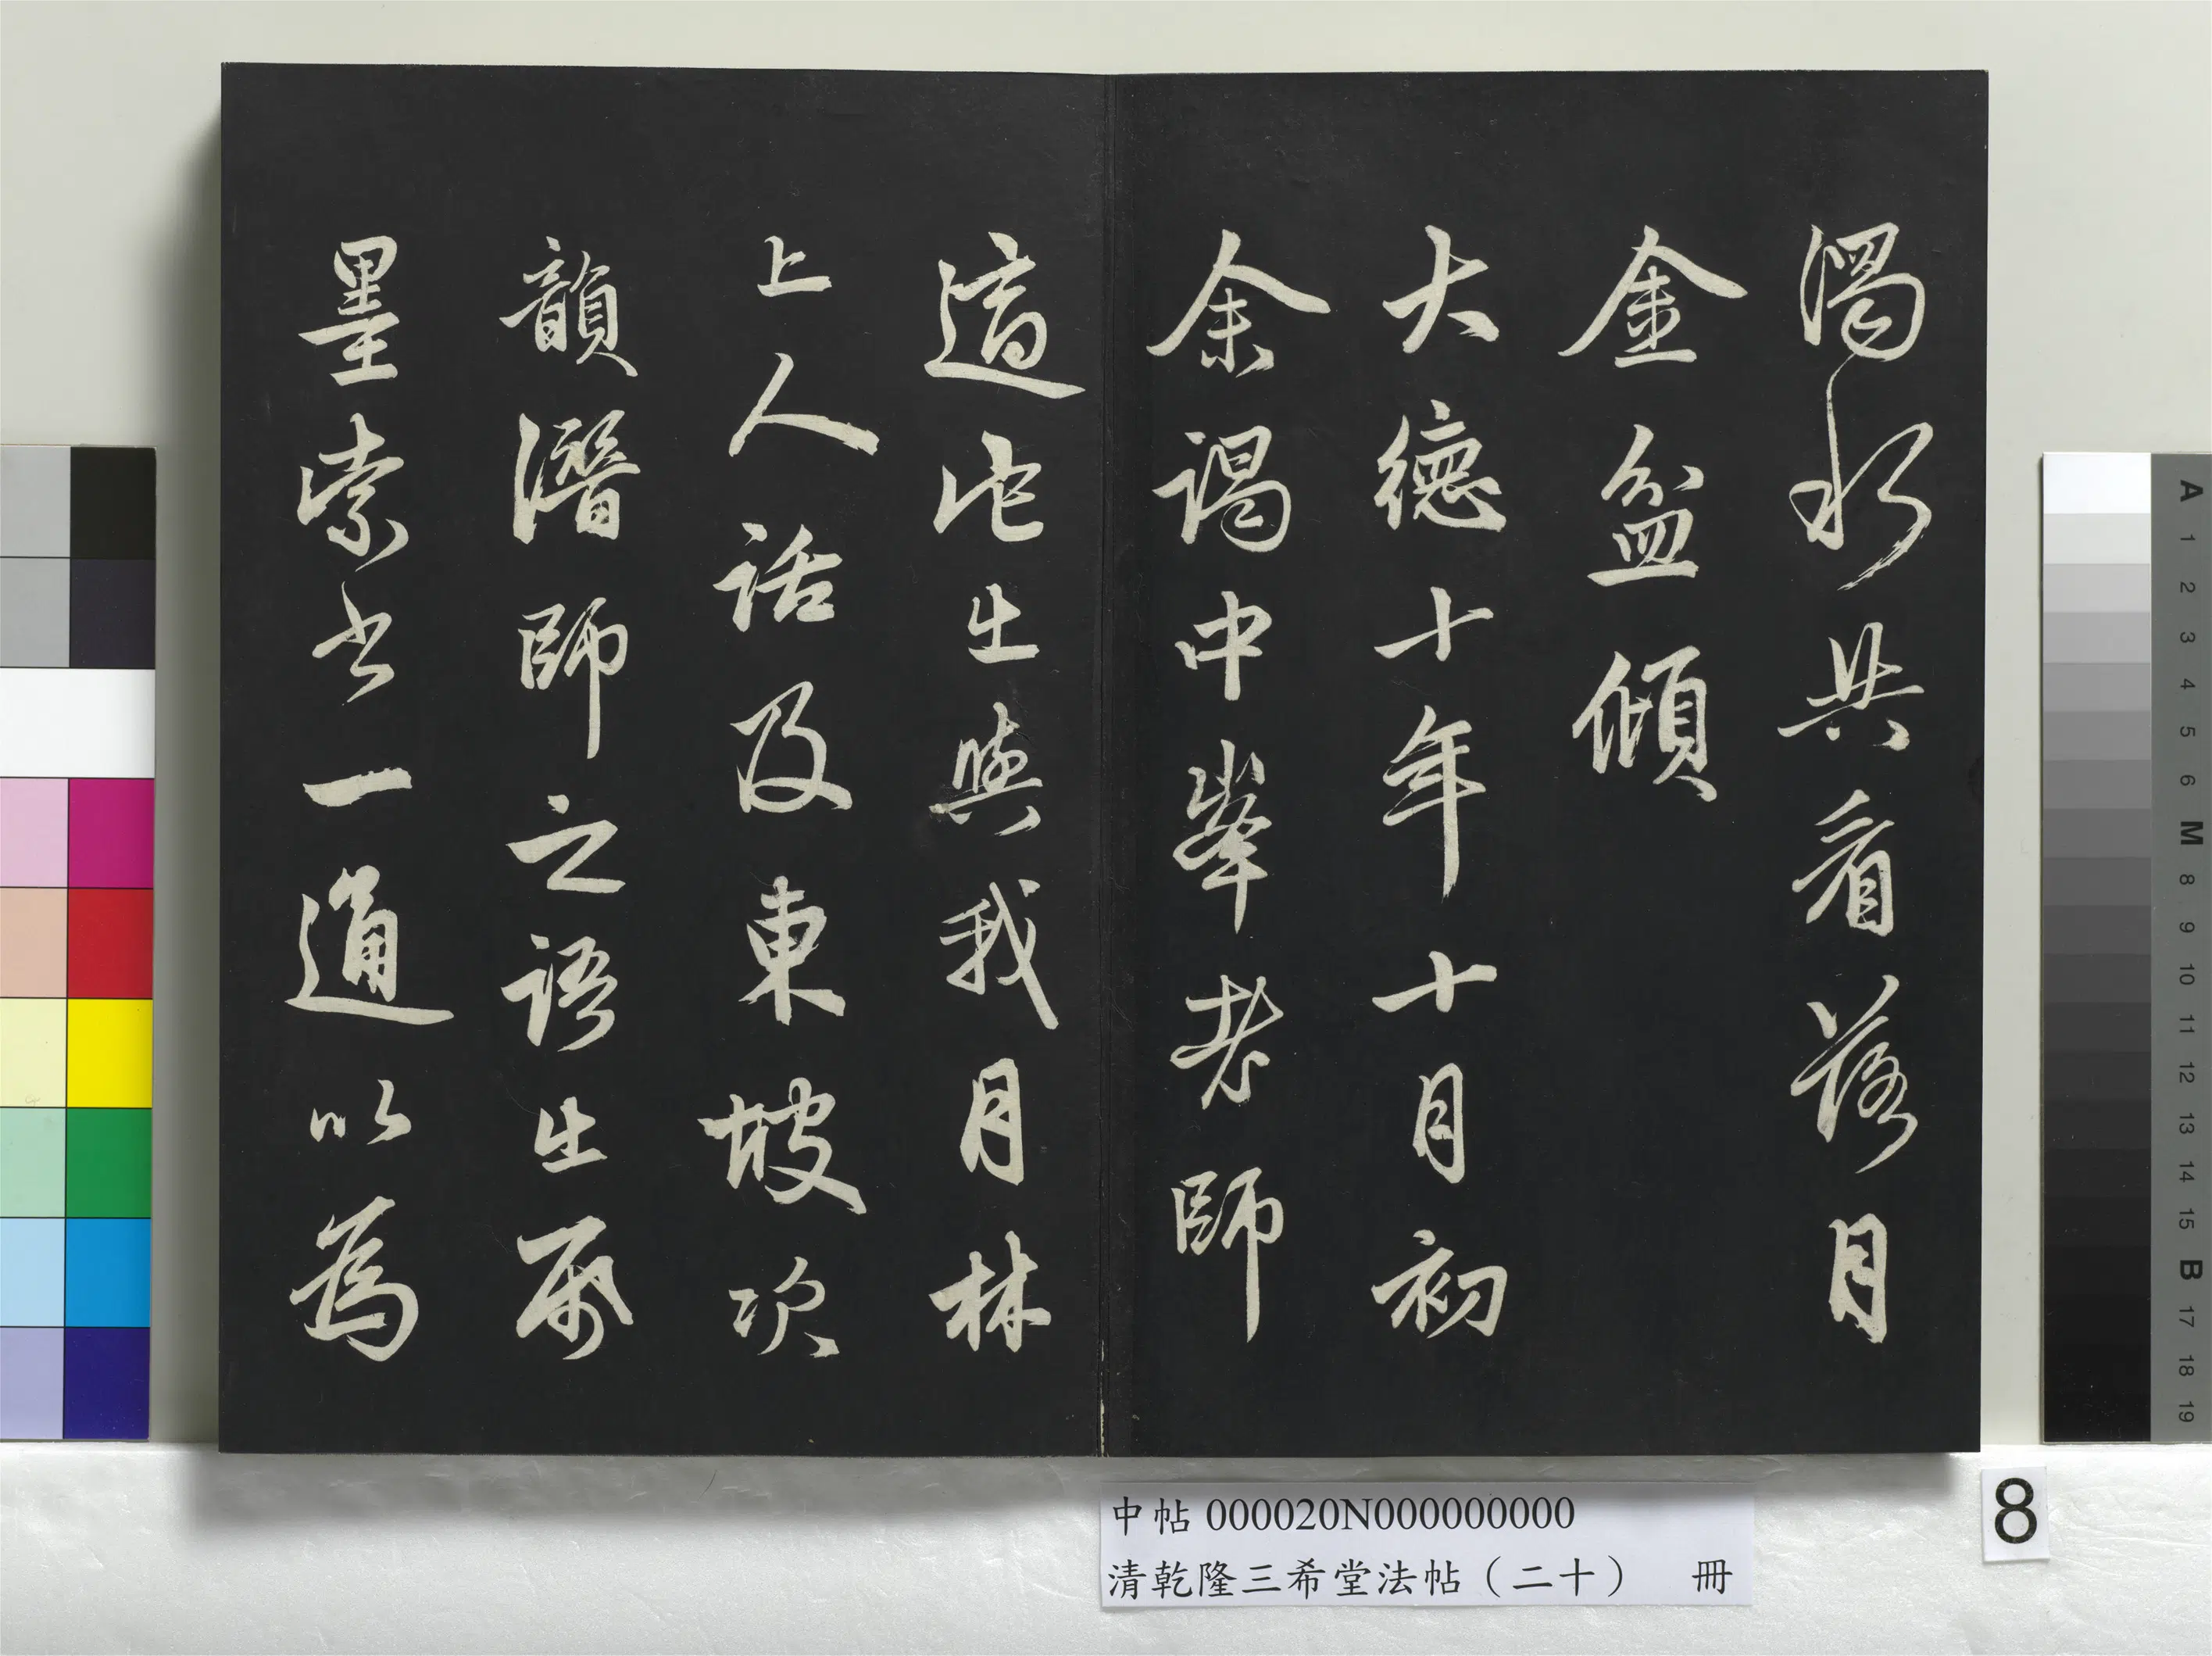 濁水共看落月
金盆傾
大德十年十月初
余謁中峯老師
適此生與我月林
上人話及東坡次
韻潛師之語生紙
墨索書一通以為
中帖 000020N000000000
清乾隆三希堂法帖（二十） 冊
8
A
1
2
3
4
5
6
M
8
9
10
11
12
13
14
15
B
17
18
19